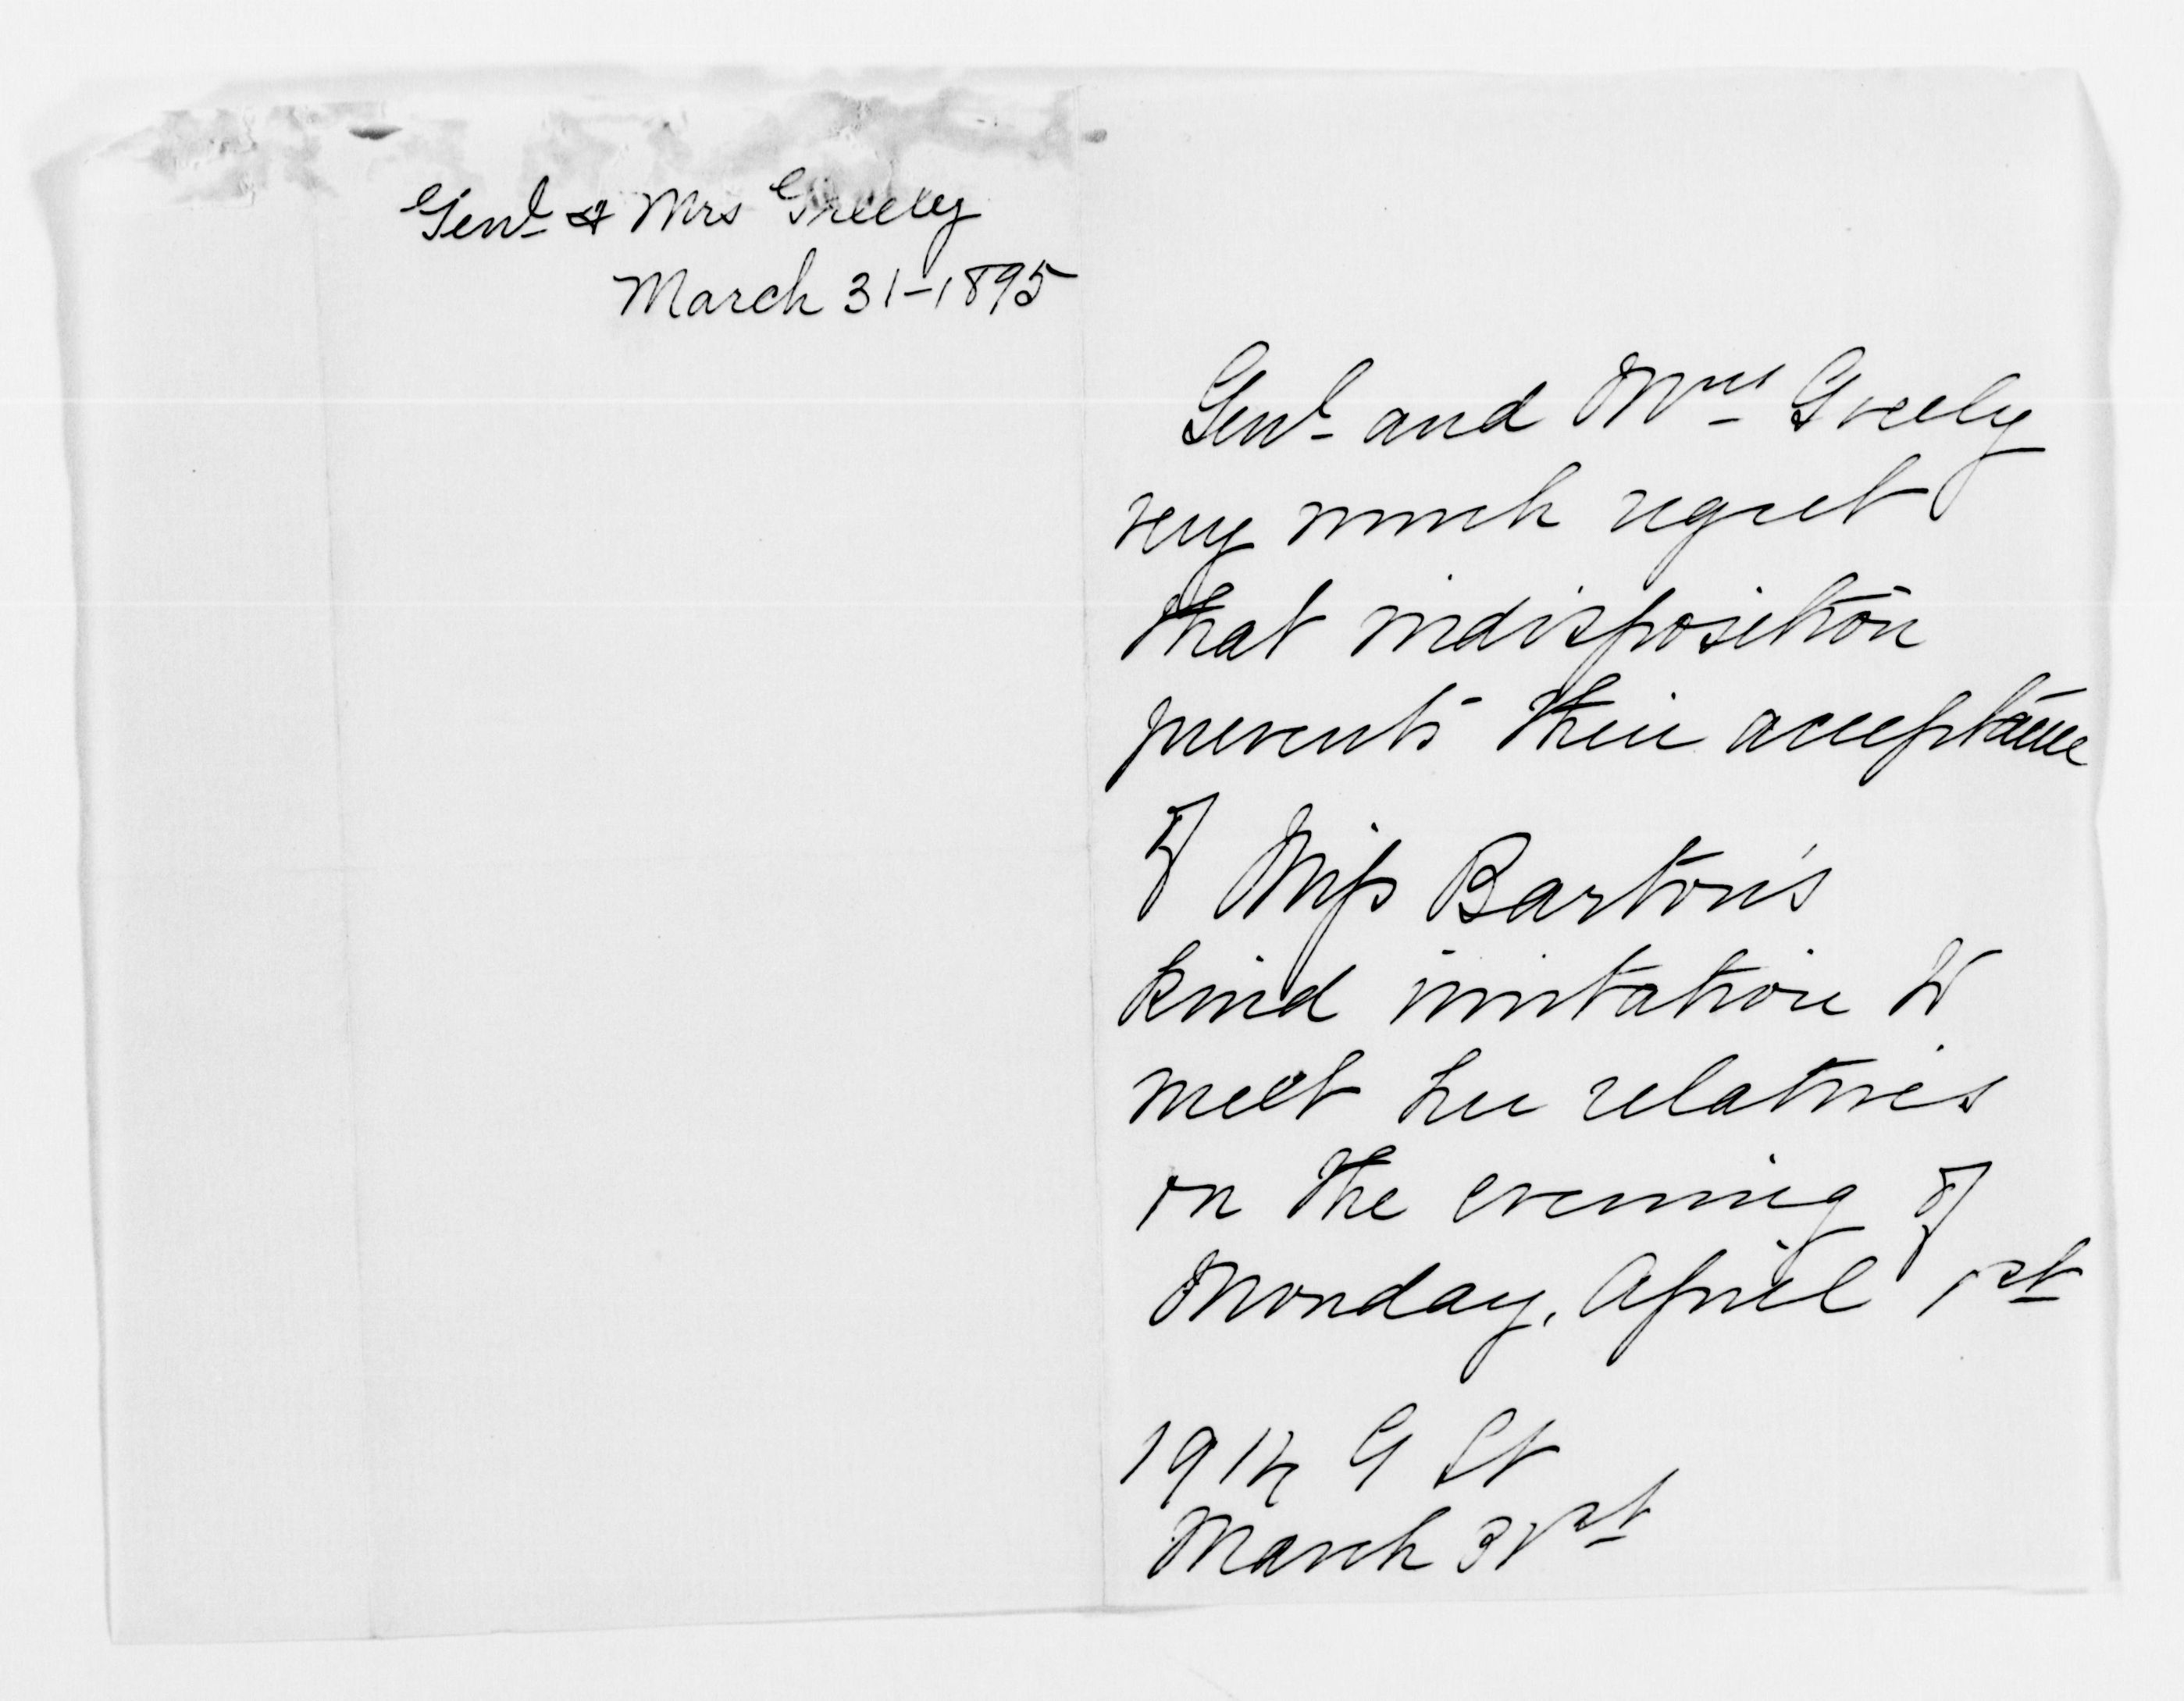 Genl & Mrs Greely
March 31-1895
Genl and Mrs Greely
very much regret
that indisposition
prevents their acceptance
of Miss Barton's
kind invitation to
meet her relatives
on the evening of
Monday, April 1st
1914 G St
March 31st